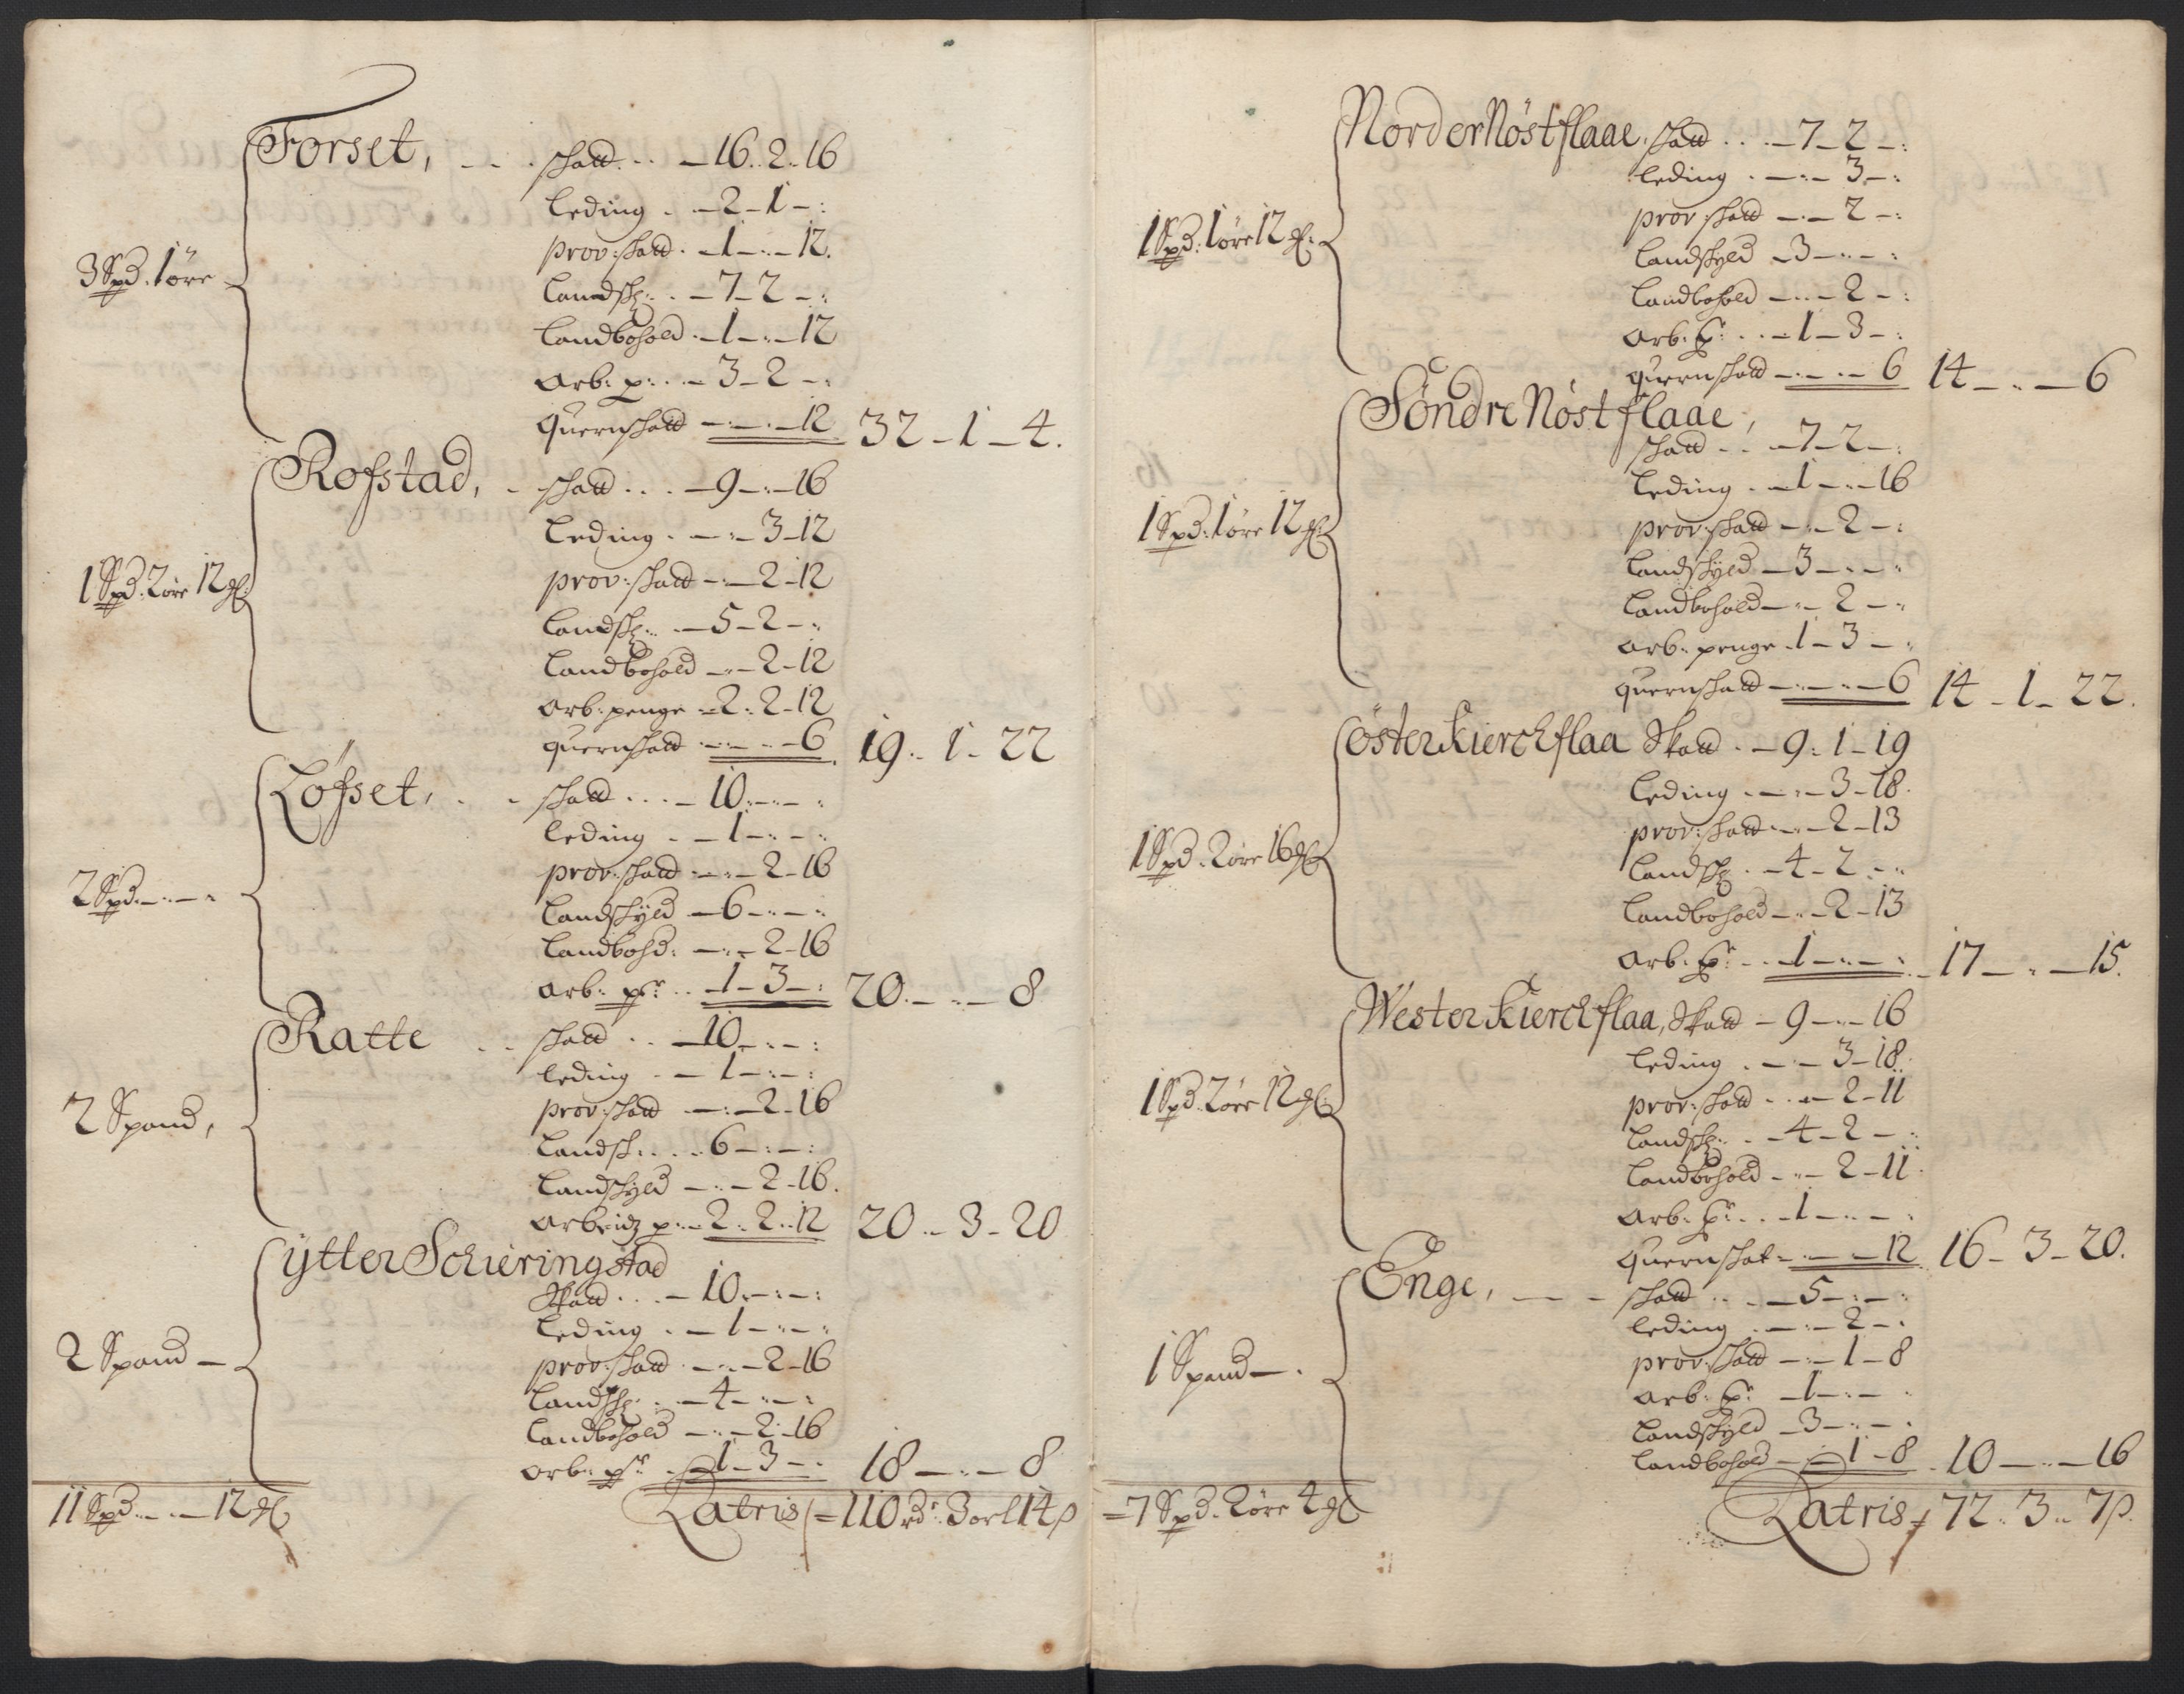 Forset, - - . skatt . . . - 16 . 2 . 16
leding . . - 2 - 1 - :
prov: skatt . - 1 - : - 12.
3 Spd. 1 øre
landsk: . . - 7 - 2 - :
landbohold . - 1 - : - 12
Arb: p: . . - 3 - 2 - :
Quernskatt - : - . - 12 32 - 1 - 4.
Rofstad, . skatt . . . - 9 - : - 16
leding . - : - 3 - 12
prov: skatt - : - 2 - 12
1 Spd. 2 øre 12 ɱ:
landsk: . - 5 - 2 - :
landbohold - : - 2 - 12
Arb: penge - 2 : 2 - 12
quernskatt - : - . - 6 19 : - 1 - 22
Løfset, . . skatt . . . - 10 : - : - :
leding . - 1 - : - :
prov: skatt - : - 2 - 16
2 Spd. - : - :
landskyld - 6 - : - :
landbohd: - : - 2 - 16
Arb: pr: . . - 1 - 3 - : 20 . - : - 8
Ratte . . skatt . . - 10 - : - :
leding . - 1 - : - :
prov: skatt - : - 2 - 16
2 Spand,
landsk: . . . 6 - : - :
landskyld - : - 2 - 16.
Arbeidz p: - 2 : 2 : 12 20 . - 3 - 20
ÿtter Schieringstad
Skatt . . . - 10 . - : - :
leding . - 1 - : - :
prov: skatt . - : - 2 - 16
2 Spand -
landsk: . - 4 - : - :
landbohold - : - 2 - 16
Arb: pr: . - 1 - 3 - : 18 - : - 8
11 Spd. - . - 12 ɱ Latris = 110 rd: 3 ort 14 β
Norder Nøstflaae, skatt . . . - 7 - 2 - :
leding . - : - 3 - :
prov: skatt - : - 2 - :
1 Spd: 1 øre 12 ɱ:
landskyld - 3 - : - :
landbohold - : - 2 - :
Arb: p: . . - 1 - 3 - :
quernskatt - : - . - 6 14 - : - 6
Søndre Nøstflaae,
skatt . . - 7 - 2 - :
leding . - 1 - : - 16
1 Spd: 1 øre 12 ɱ:
prov: skatt - : - 2 - :
landskyld - 3 - : - :
landbohold - : - 2 - :
Arb: penge . 1 - 3 - :
quernskatt - : - : - 6 14 - 1 - 22.
øster Kierchflaa Skatt . - 9 : 1 - 19
leding . - : - 3 - 18.
prov: skatt - : - 2 - 13
1 Spd. 2 øre 16 ɱ
landsk: . - 4 - 2 : - :
landbohold - : - 2 - 13
Arb: p: . . - 1 - : - : 17 - : - 15.
Wester Kierchflaa, Skatt - 9 - : - 16
leding . - : - 3 - 18.
prov: skatt . : - 2 - 11
1 Spd. 2 øre 12 ɱ:
landsk: . - 4 - 2 - :
landbohold - : - 2 - 11.
Arb: p: . . - 1 - : - :
Quernskat - : - : - 12 16 - 3 - 20.
Enge, - - - skatt . . . - 5 - : - :
leding . - : - 2 - :
prov: skatt - : - 1 - 8
1 Spand - .
Arb: p: - 1 - : - :
landskyld - 3 - : - :
landbohold - : - 1 - 8 . 10 - : - 16
= 7 Spd. 2 øre 4 ɱ Latris = 72 . 3 . 7 β.